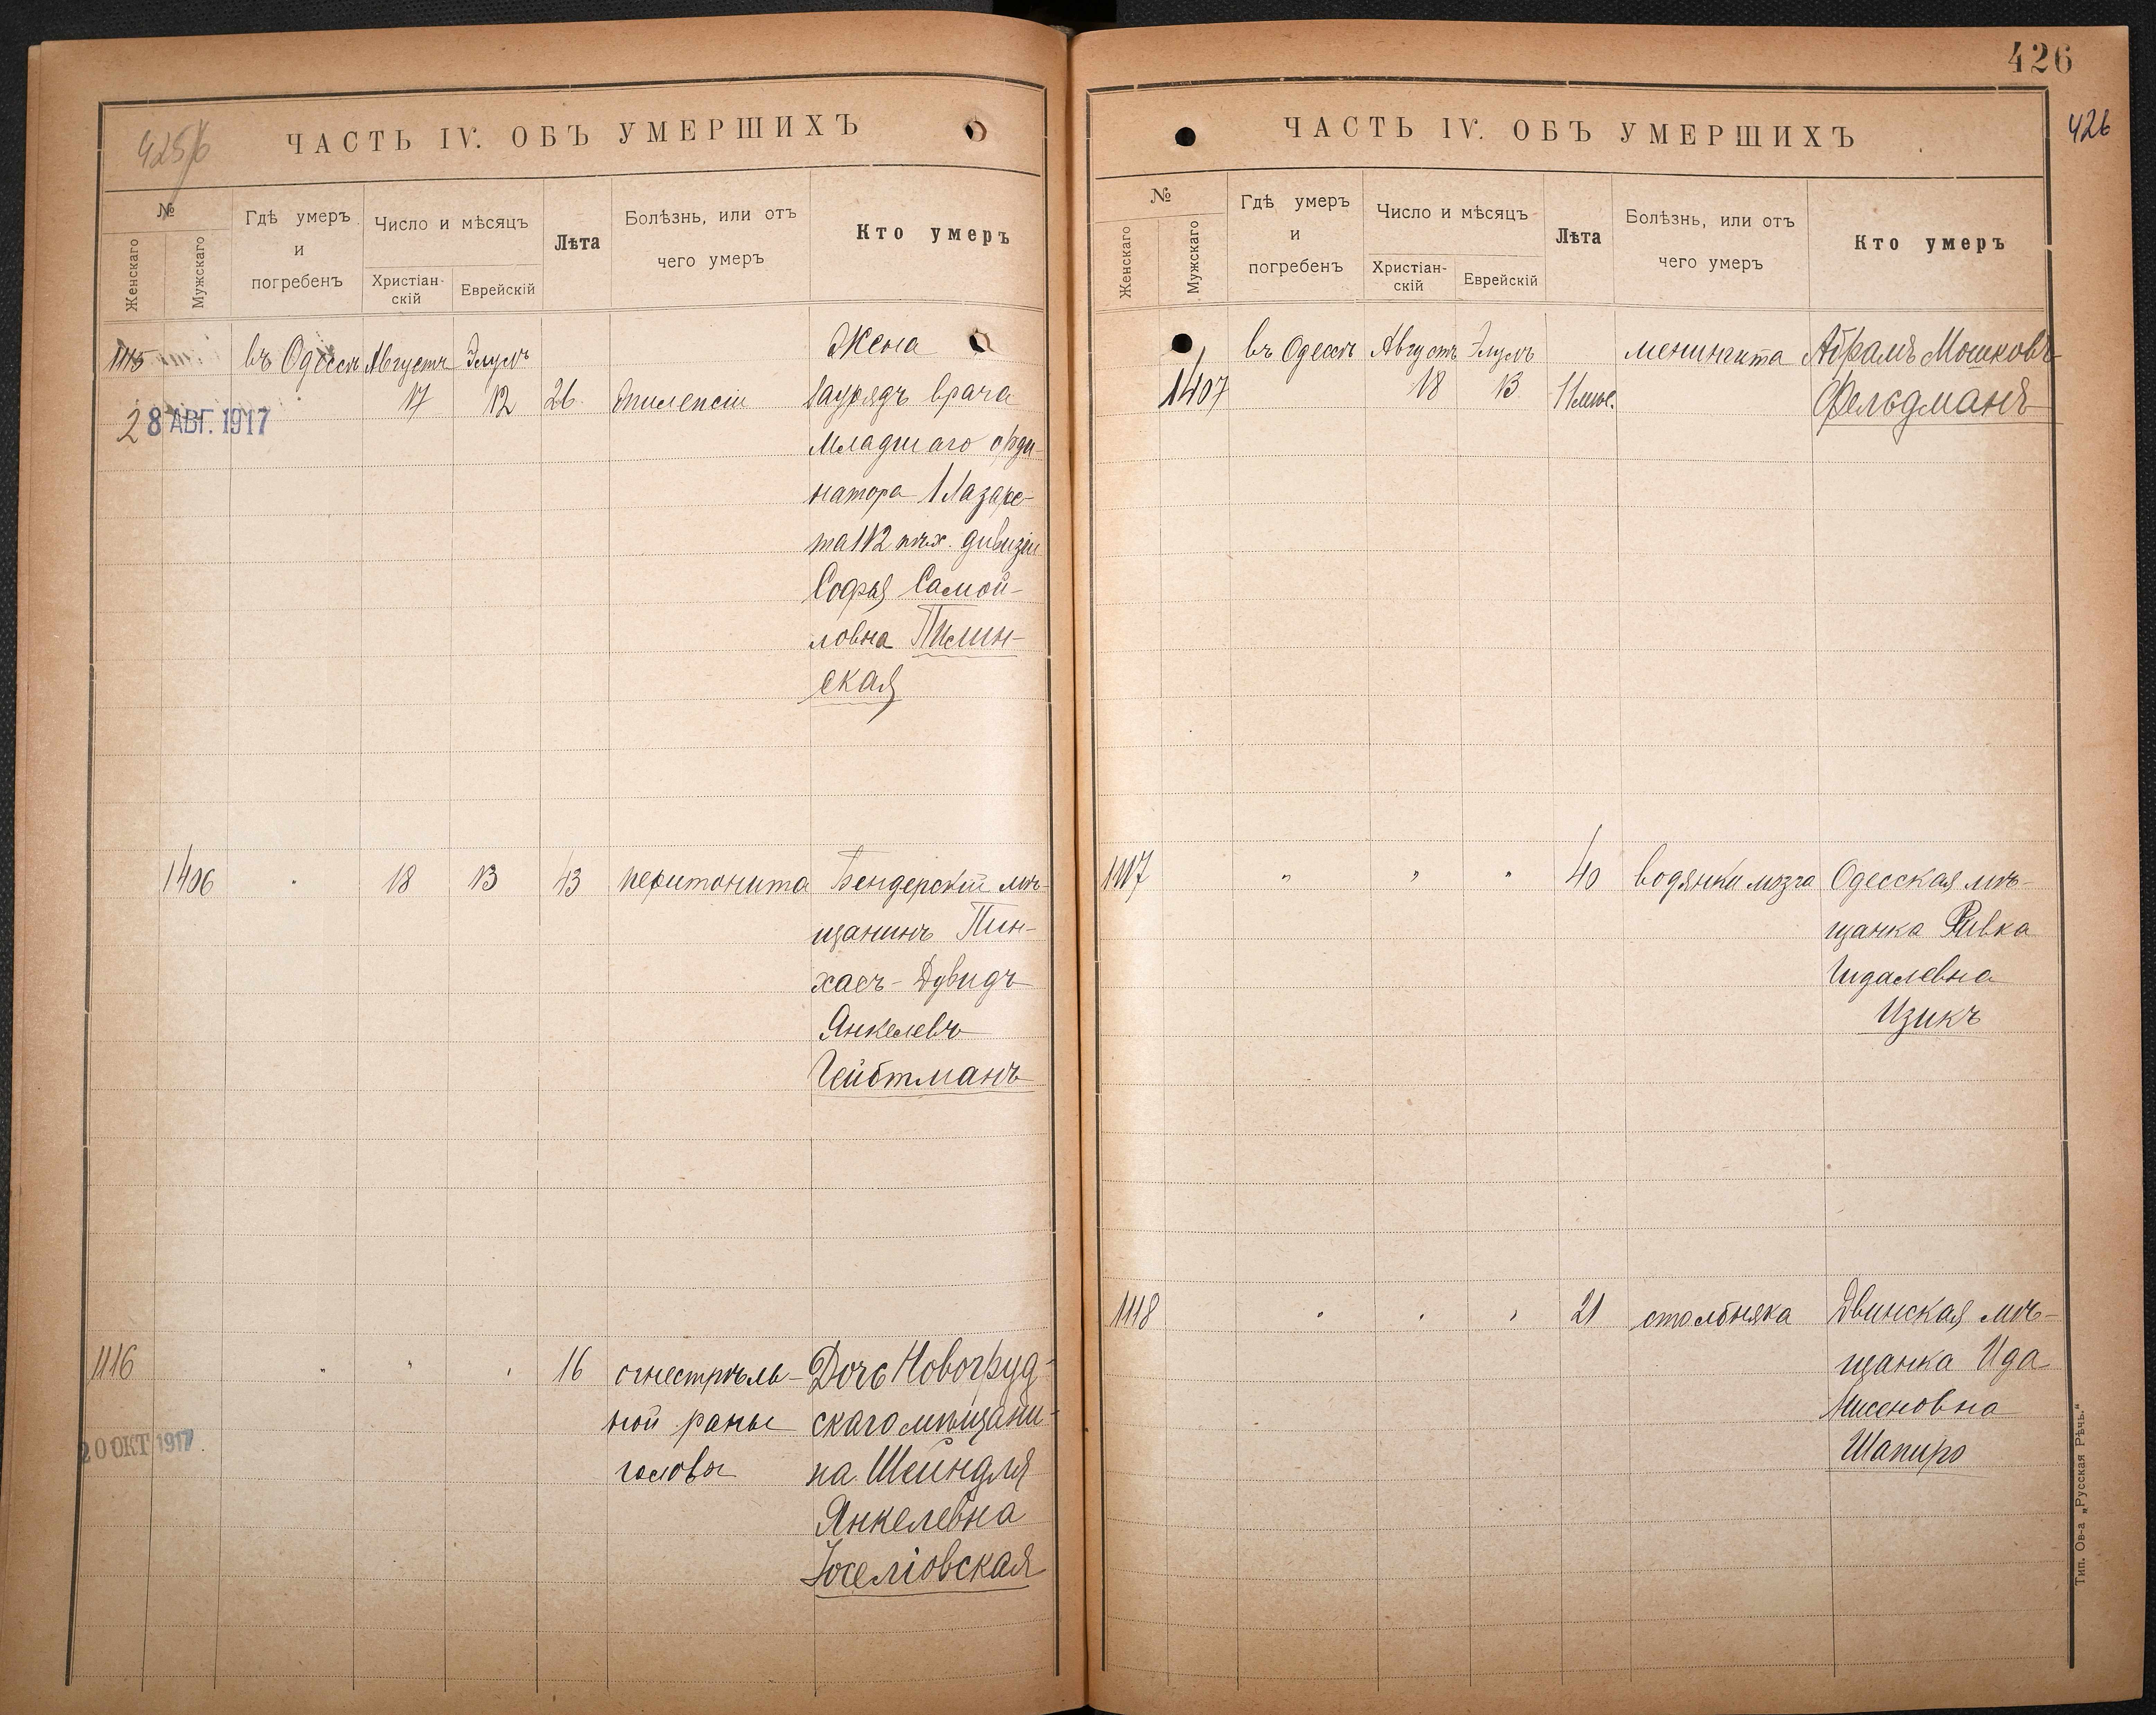 425/6
ЧАСТЬ IV. ОБЪ УМЕРШИХЪ
№
Женскаго
Мужскаго
Гдѣ умеръ
и
погребенъ
Число и мѣсяцъ
Христіан-
скій
Еврейскій
Лѣта
Болѣзнь, или отъ
чего умеръ
Кто умеръ
1115 въ Одессѣ Августъ Элулъ Жена
17 12 26 эпилепсіи Заурядъ врача
28 АВГ. 1917
младшаго орди-
натора 1 Лазаре-
та 112 пѣх. дивизіи
Софья Самой-
ловна Пилин-
ская
1406 " 18 13 43 перитонита Бендерскій мѣ-
щанинъ Пин-
хасъ-Дувидъ
Янкелевъ
Гейбтманъ
1116 " " " 16 огнестрѣль- Дочь Новогруд-
ной раны скаго мѣщани-
20 ОКТ 1917
головы на Шейндля
Янкелевна
Іоселіовская
426
426
ЧАСТЬ IV. ОБЪ УМЕРШИХЪ
№
Женскаго
Мужскаго
Гдѣ умеръ
и
погребенъ
Число и мѣсяцъ
Христіан-
скій
Еврейскій
Лѣта
Болѣзнь, или отъ
чего умеръ
Кто умеръ
въ Одессѣ Августъ Элулъ менингита Абрамъ Мошковъ
1407 18 13 11 мѣс. Фельдманъ
1117 " " " 40 водянки мозга Одесская мѣ-
щанка Ривка
Гидалевна
Цзикъ
1118 " " " 21 столбняка Двинская мѣ-
щанка Ида
Нисеновна
Шапиро
Тип. Ов-а „Русская Рѣчь."